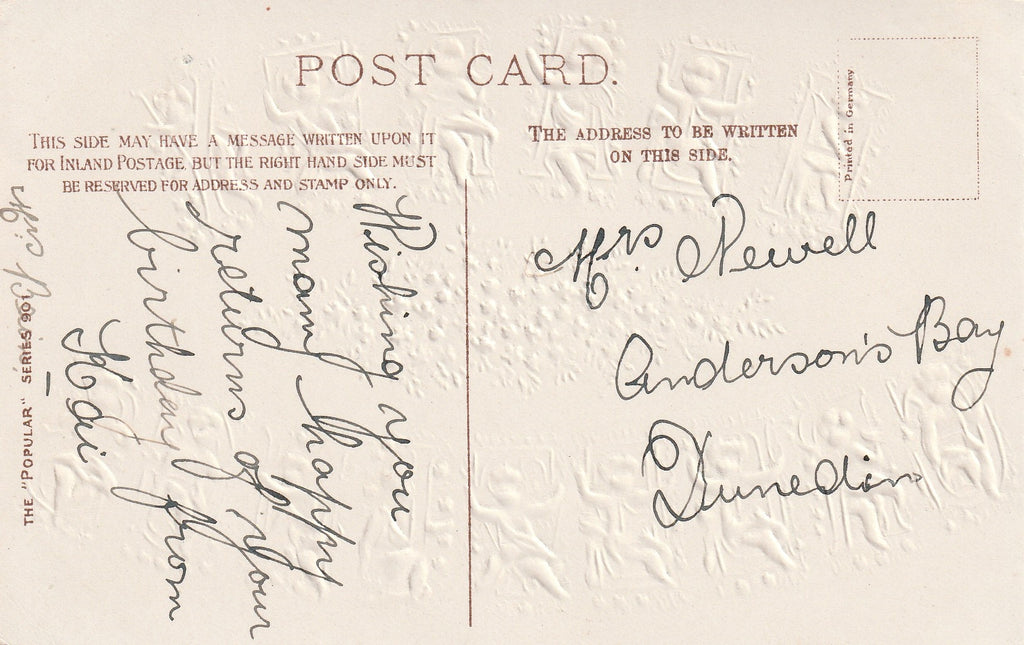 POST CARD.
THIS SIDE MAY HAVE A MESSAGE WRITTEN UPON IT
FOR INLAND POSTAGE, BUT THE RIGHT HAND SIDE MUST
BE RESERVED FOR ADDRESS AND STAMP ONLY.
THE ADDRESS TO BE WRITTEN
ON THIS SIDE.
Printed in Germany
Wishing you
many happy
returns of your
birthday from
THE "POPULAR" SERIES 901
Mrs Newell
Anderson's Bay
Dunedin